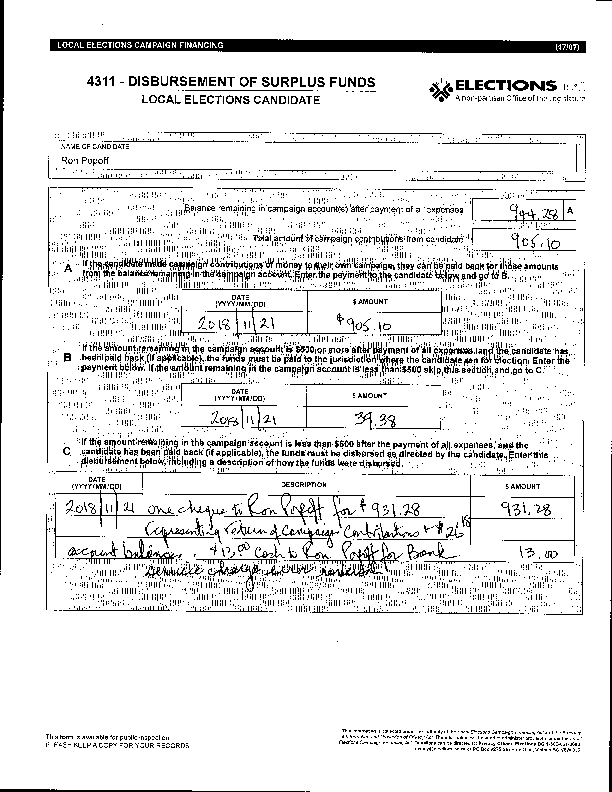 LOCAL ELECTIONS CAMPAIGN FINANCING
(17/07)
4311 - DISBURSEMENT OF SURPLUS FUNDS
LOCAL ELECTIONS CANDIDATE
ELECTIONS
A non-partisan Office of the Legislature
NAME OF CANDIDATE
Ron Popoff
Balance remaining in campaign account(s) after payment of all expenses
944.28 A
Total amount of campaign contributions from candidate
905.10
A If the candidate made campaign contributions of money to their own campaign, they can be paid back for those amounts
from the balance remaining in the campaign account. Enter the payment to the candidate below and go to B.
DATE
(YYYY/MM/DD)
$ AMOUNT
2018/11/21
$905.10
B If the amount remaining in the campaign account is $500 or more after payment of all expenses, and the candidate has
been paid back (if applicable), the funds must be paid to the jurisdiction where the candidate ran for election. Enter the
payment below. If the amount remaining in the campaign account is less than $500 skip this section and go to C.
DATE
(YYYY/MM/DD)
$ AMOUNT
2018/11/21
39.38
C If the amount remaining in the campaign account is less than $500 after the payment of all expenses, and the
candidate has been paid back (if applicable), the funds must be disbursed as directed by the candidate. Enter this
disbursement below, including a description of how the funds were disbursed.
DATE
(YYYY/MM/DD)
DESCRIPTION
$ AMOUNT
2018/11/21 one cheque to Ron Popoff for $931.28
931.28
Representing return of Campaign Contributions + $26.18
account balances. $13.00 cash to Ron Popoff for Bank
13.00
service charge
This form is available for public inspection
PLEASE KEEP A COPY FOR YOUR RECORDS